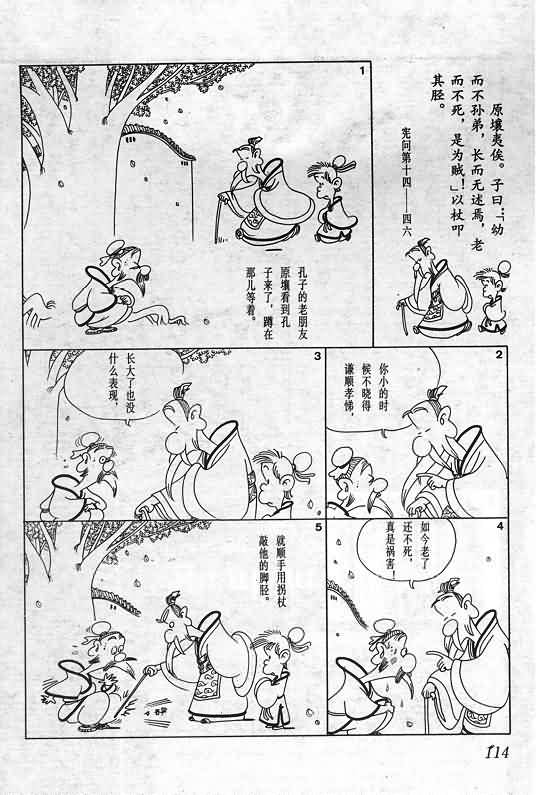 原壤夷俟。子曰：「幼
而不孙弟，长而无述焉，老
而不死，是为贼！」以杖叩
其胫。
宪问第十四——四六
1
孔子的老朋友
原壤看到孔
子来了，蹲在
那儿等着。
2
你小的时
候不晓得
谦顺孝悌，
3
长大了也没
什么表现，
4
如今老了
还不死，
真是祸害！
5
就顺手用拐杖
敲他的脚胫。
114